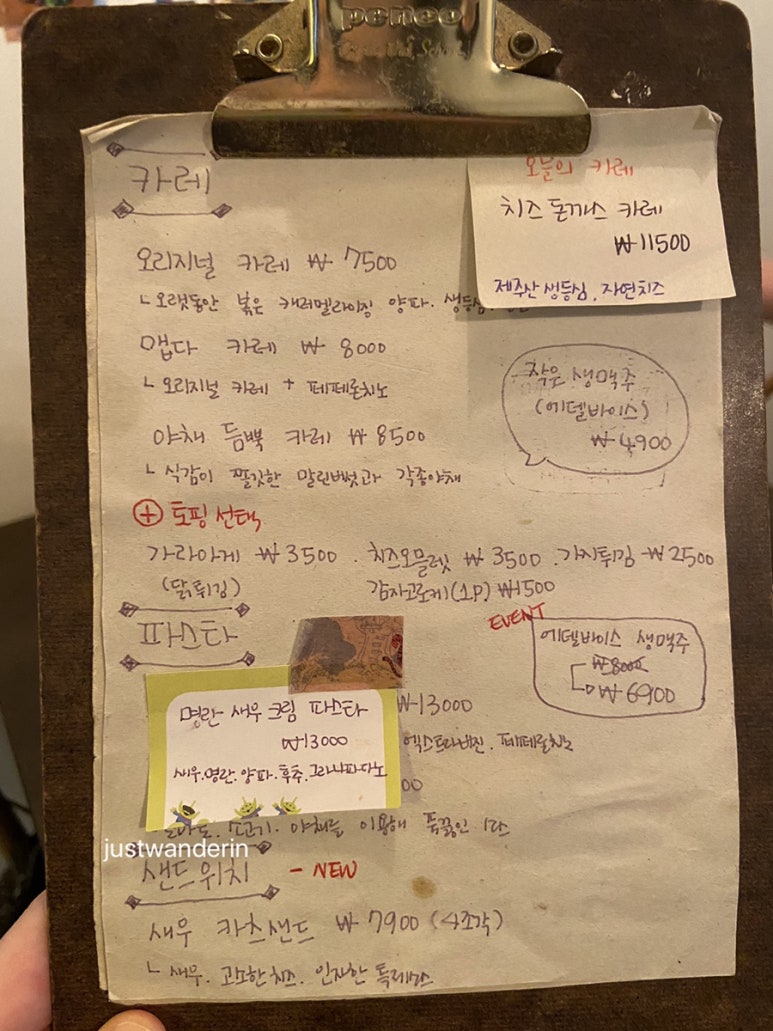 peneo
카레
오늘의 카레
치즈 돈까스 카레
₩11500
제주산 생등심, 자연치즈
오리지널 카레 ₩ 7500
ㄴ 오랫동안 볶은 캐러멜라이징 양파. 생등심.
맵다 카레 ₩ 8000
ㄴ 오리지널 카레 + 페페론치노
작은 생맥주
(에델바이스)
₩4900
야채 듬뿍 카레 ₩ 8500
ㄴ 식감이 쫄깃한 말린버섯과 각종야채
+ 토핑선택
가라아게 ₩3500 . 치즈오믈렛 ₩ 3500 . 가지튀김 ₩2500
(닭튀김) 감자고로케(1p) ₩1500
파스타
EVENT
에델바이스 생맥주
₩8000
₩6900
명란 새우 크림 파스타
₩13000
새우.명란.양파.후추.그라나파다노
₩13000
엑스트라버진. 페페론치노
00
소고기. 야채를 이용해 푹끓인
justwanderin
샌드위치 - NEW
새우 카츠샌드 ₩ 7900 (4조각)
ㄴ 새우. 고소한치즈.